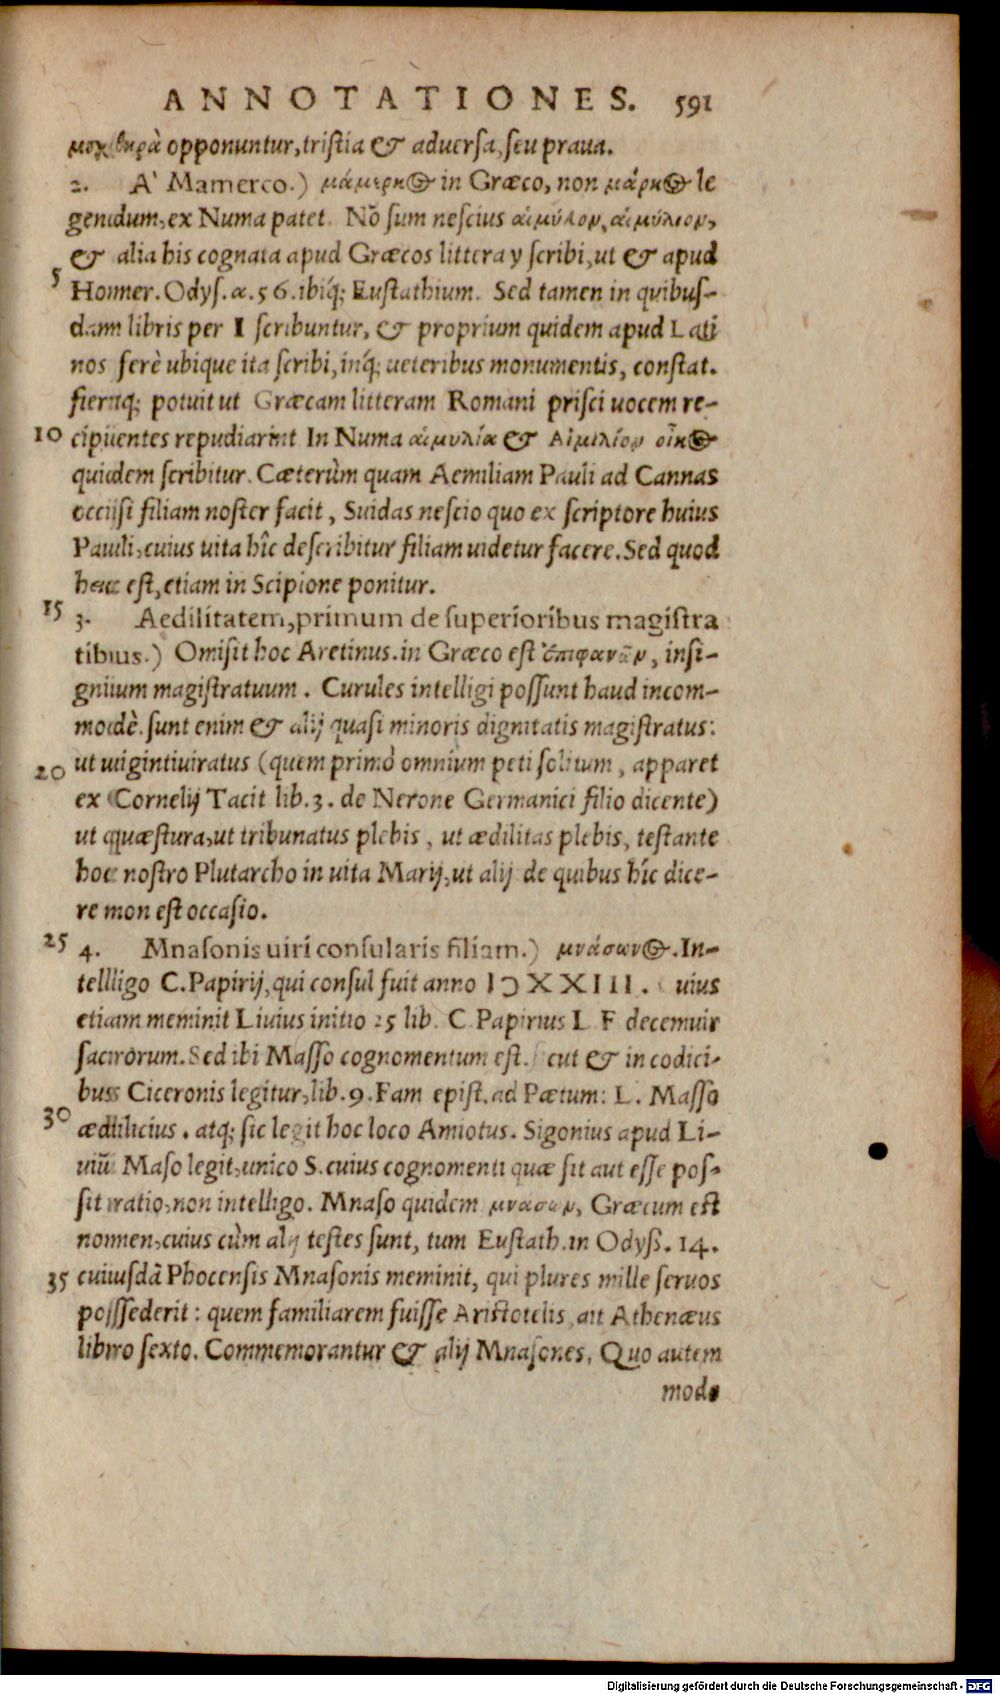 ANNOTATIONES. 591
μοχθηρὰ opponuntur, tristia & aduersa, seu praua.
2. A' Mamerco.) μάμερκος in Græco, non μάρκος le
gendum, ex Numa patet. Nō sum nescius αἱμύλον, αἱμύλιον,
& alia his cognata apud Græcos littera y scribi, ut & apud
5
Homer. Odys. α. 56. ibiq́; Eustathium. Sed tamen in quibus-
dam libris per I scribuntur, & proprium quidem apud Lati
nos ferè ubique ita scribi, inq́; ueteribus monumentis, constat.
fieriq; potuit ut Græcam litteram Romani prisci uocem re-
10 cipientes repudiarint In Numa αἱμυλία & Αἰμιλίων οἶκος
quidem scribitur. Cæterùm quam Aemiliam Pauli ad Cannas
occisi filiam noster facit, Suidas nescio quo ex scriptore huius
Pauli, cuius uita hîc describitur filiam uidetur facere. Sed quod
hac est, etiam in Scipione ponitur.
15 3. Aedilitatem, primum de superioribus magistra
tibus.) Omisit hoc Aretinus. in Græco est ἐπιφανῶν, insi-
gnium magistratuum. Curules intelligi possunt haud incom-
modè. sunt enim & alij quasi minoris dignitatis magistratus:
20 ut uigintiuiratus (quem primò omnium peti solitum, apparet
ex Cornelij Tacit lib. 3. de Nerone Germanici filio dicente)
ut quæstura, ut tribunatus plebis, ut ædilitas plebis, testante
hoc nostro Plutarcho in uita Marij, ut alij de quibus hîc dice-
re non est occasio.
25 4. Mnasonis uiri consularis filiam.) μνάσωνος. In-
telligo C. Papirij, qui consul fuit anno IↃXXIII. cuius
etiam meminit Liuius initio 25 lib. C Papirius L F decemuir
sacrorum. Sed ibi Masso cognomentum est. sicut & in codici-
bus Ciceronis legitur, lib. 9. Fam epist. ad Pætum: L. Masso
30 ædilicius. atq; sic legit hoc loco Amiotus. Sigonius apud Li-
uiū Maso legit, unico S. cuius cognomenti quæ sit aut esse pos-
sit ratio, non intelligo. Mnaso quidem μνάσων, Græcum est
nomen, cuius cùm alij testes sunt, tum Eustath. in Odyß. 14.
35 cuiusdā Phocensis Mnasonis meminit, qui plures mille seruos
possederit: quem familiarem fuisse Aristotelis, ait Athenæus
libro sexto. Commemorantur & alij Mnasones. Quo autem
modo
Digitalisierung gefördert durch die Deutsche Forschungsgemeinschaft - DFG